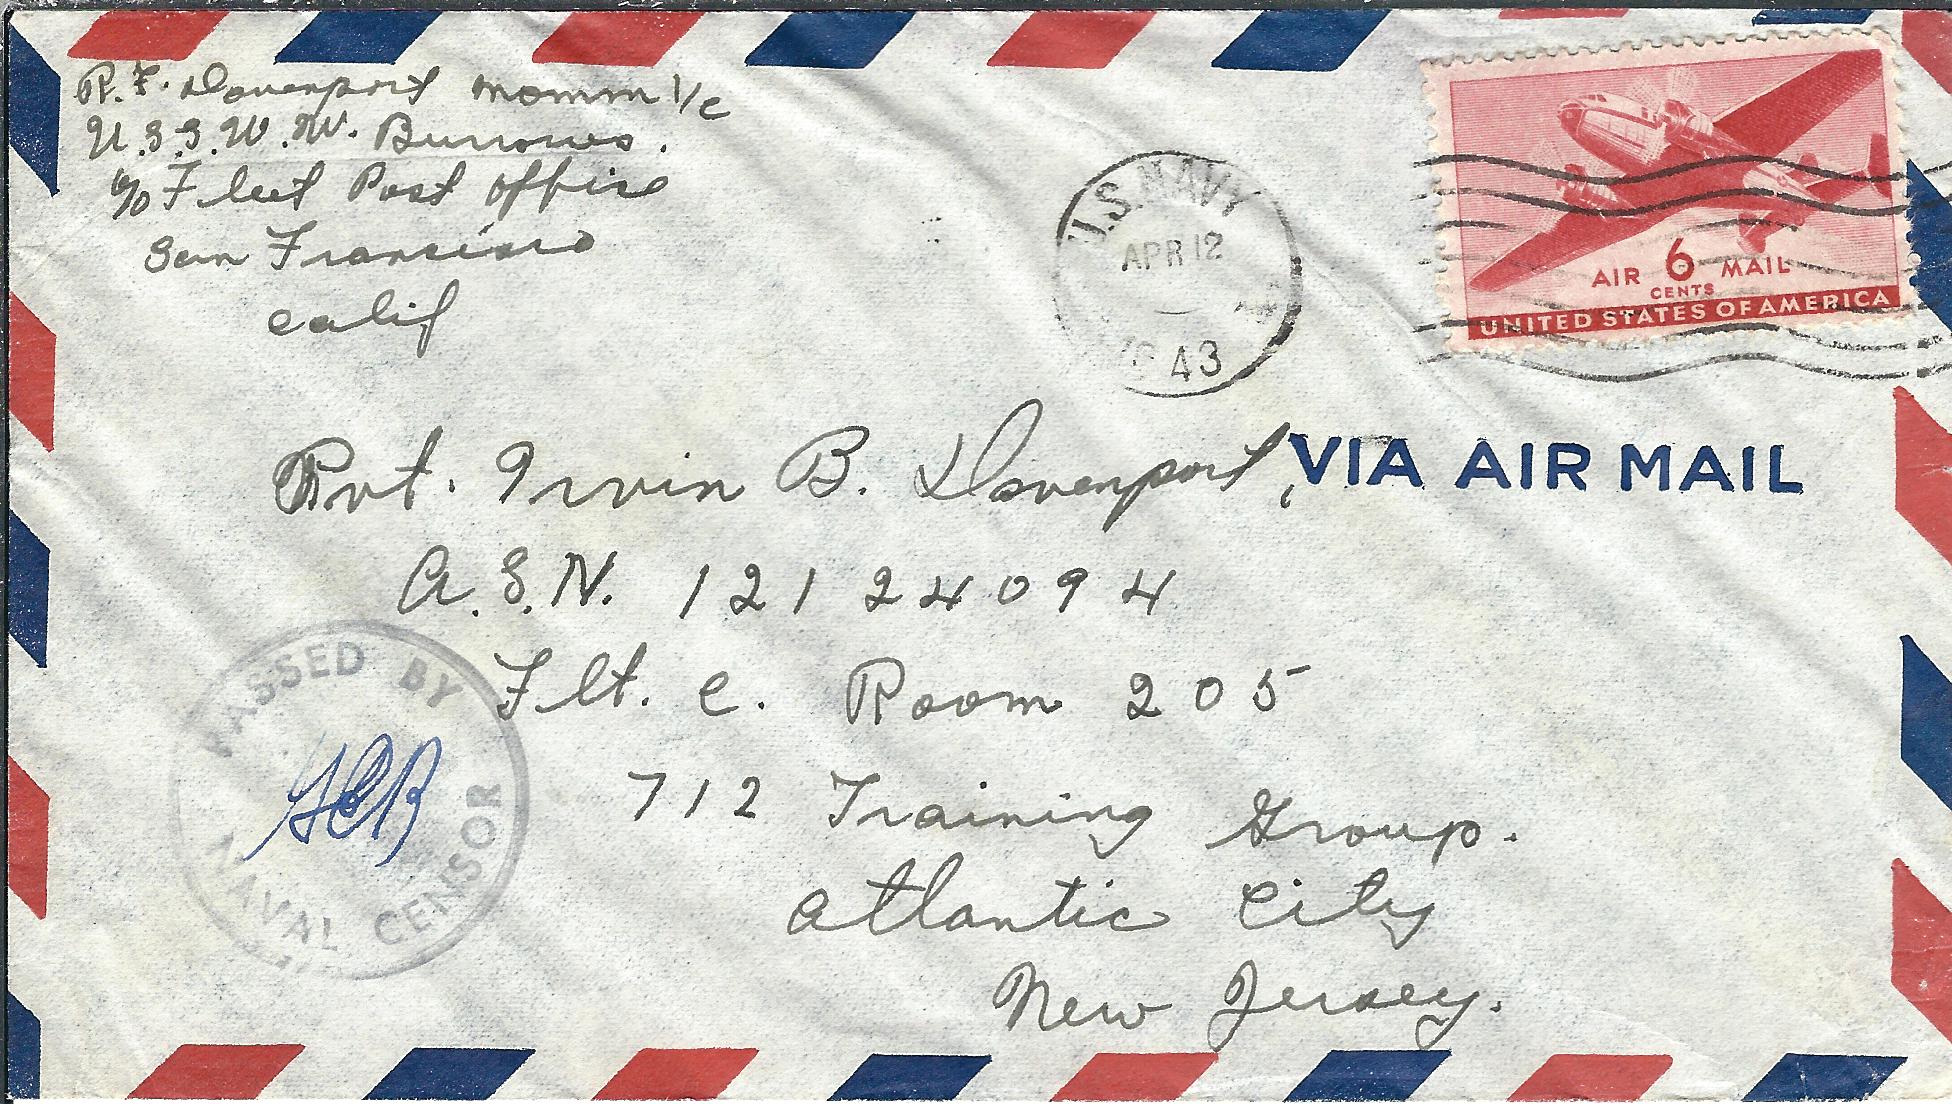 R. F. Davenport momm 1/c
U.S.S. W. W. Burrows.
c/o Fleet Post Office
San Francisco
Calif
U.S. NAVY
APR 12
AM
43
AIR 6 MAIL
CENTS
UNITED STATES OF AMERICA
Pvt. Irvin B. Davenport,
VIA AIR MAIL
A.S.N. 12124094
Flt. C. Room 205
712 Training Group.
Atlantic City
New Jersey.
PASSED BY
NAVAL CENSOR